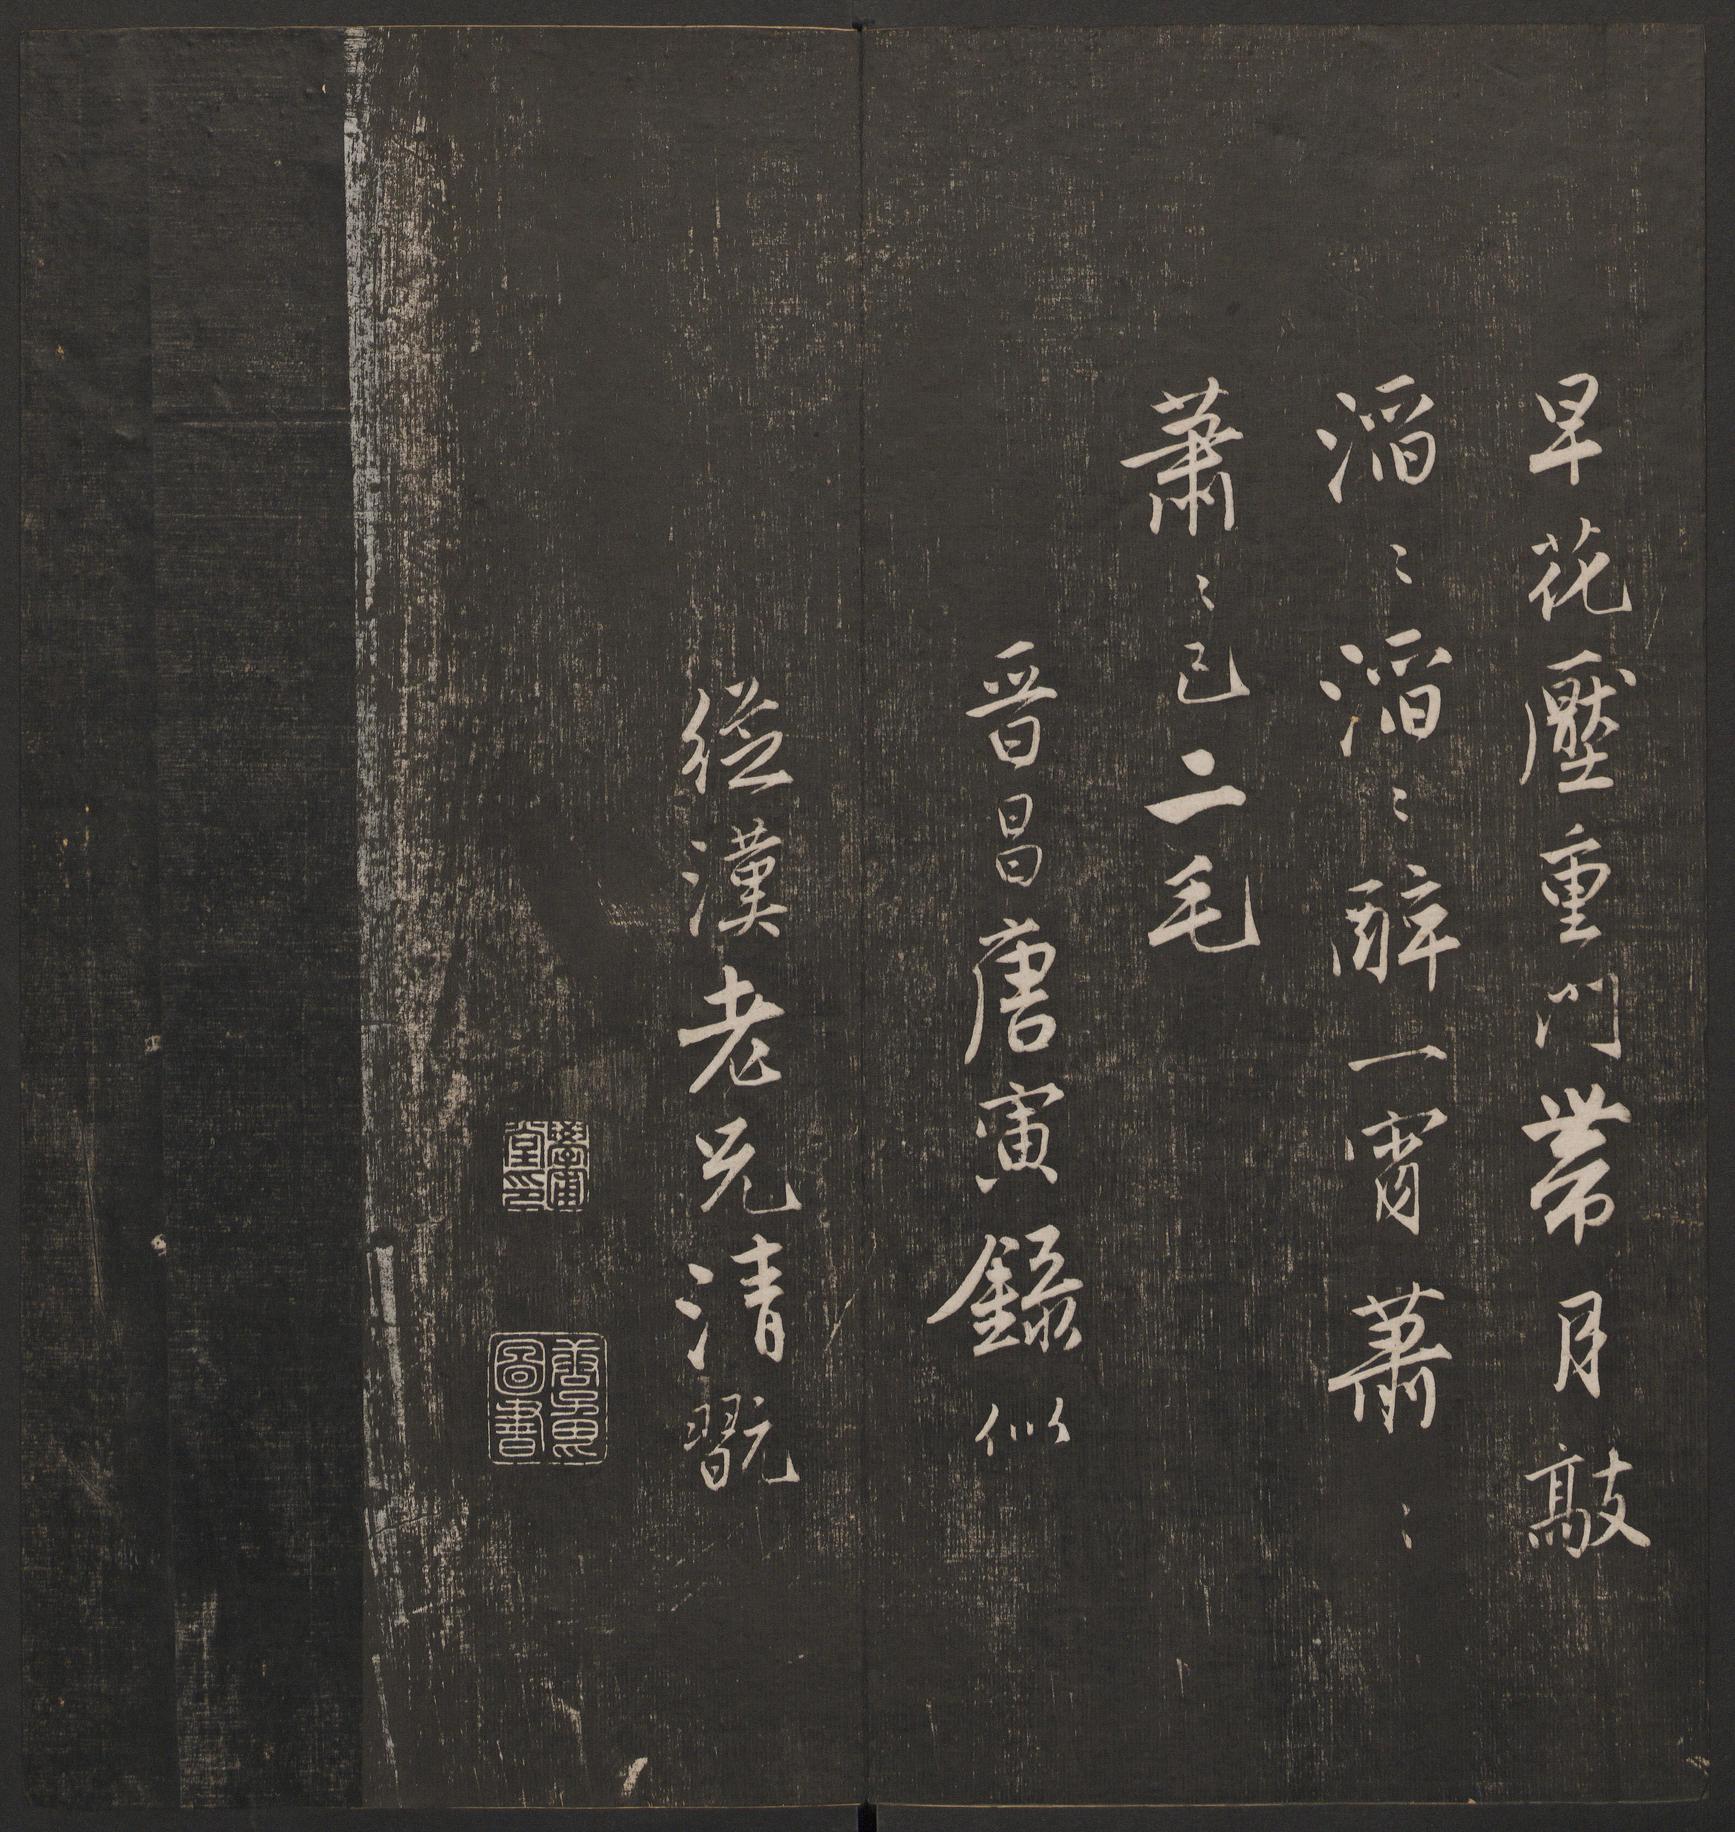 早花壓重門帶月敲
滔〻滔〻醉一宵蕭〻
蕭〻已二毛
晉昌唐寅錄似
從漢老兄清翫
學圃堂印
圖書